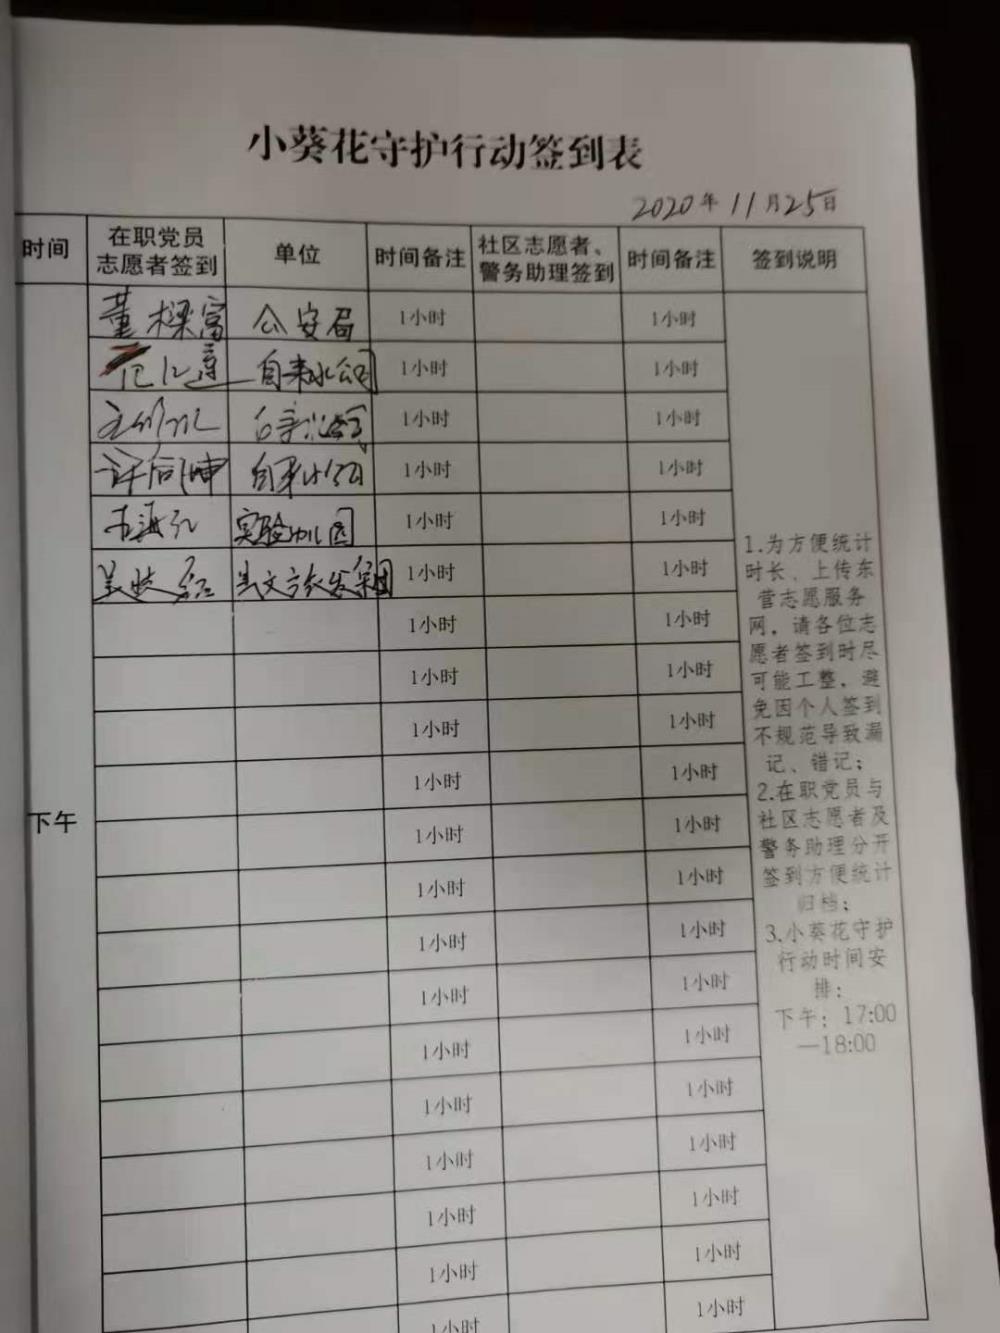 小葵花守护行动签到表
2020年11月25日
时间
在职党员
志愿者签到
单位
时间备注
社区志愿者、
警务助理签到
时间备注
签到说明
下午
董樑富 公安局 1小时 1小时
自来水公司 1小时 1小时
1小时 1小时
自来水公司 1小时 1小时
实验幼儿园 1小时 1小时
1小时 1小时
1小时 1小时
1小时 1小时
1小时 1小时
1小时 1小时
1小时 1小时
1小时 1小时
1小时 1小时
1小时 1小时
1小时 1小时
1小时 1小时
1小时 1小时
1小时 1小时
1小时 1小时
1小时 1小时
1.为方便统计
时长、上传东
营志愿服务
网，请各位志
愿者签到时尽
可能工整，避
免因个人签到
不规范导致漏
记、错记；
2.在职党员与
社区志愿者及
警务助理分开
签到方便统计
归档；
3.小葵花守护
行动时间安
排：
下午：17:00
—18:00